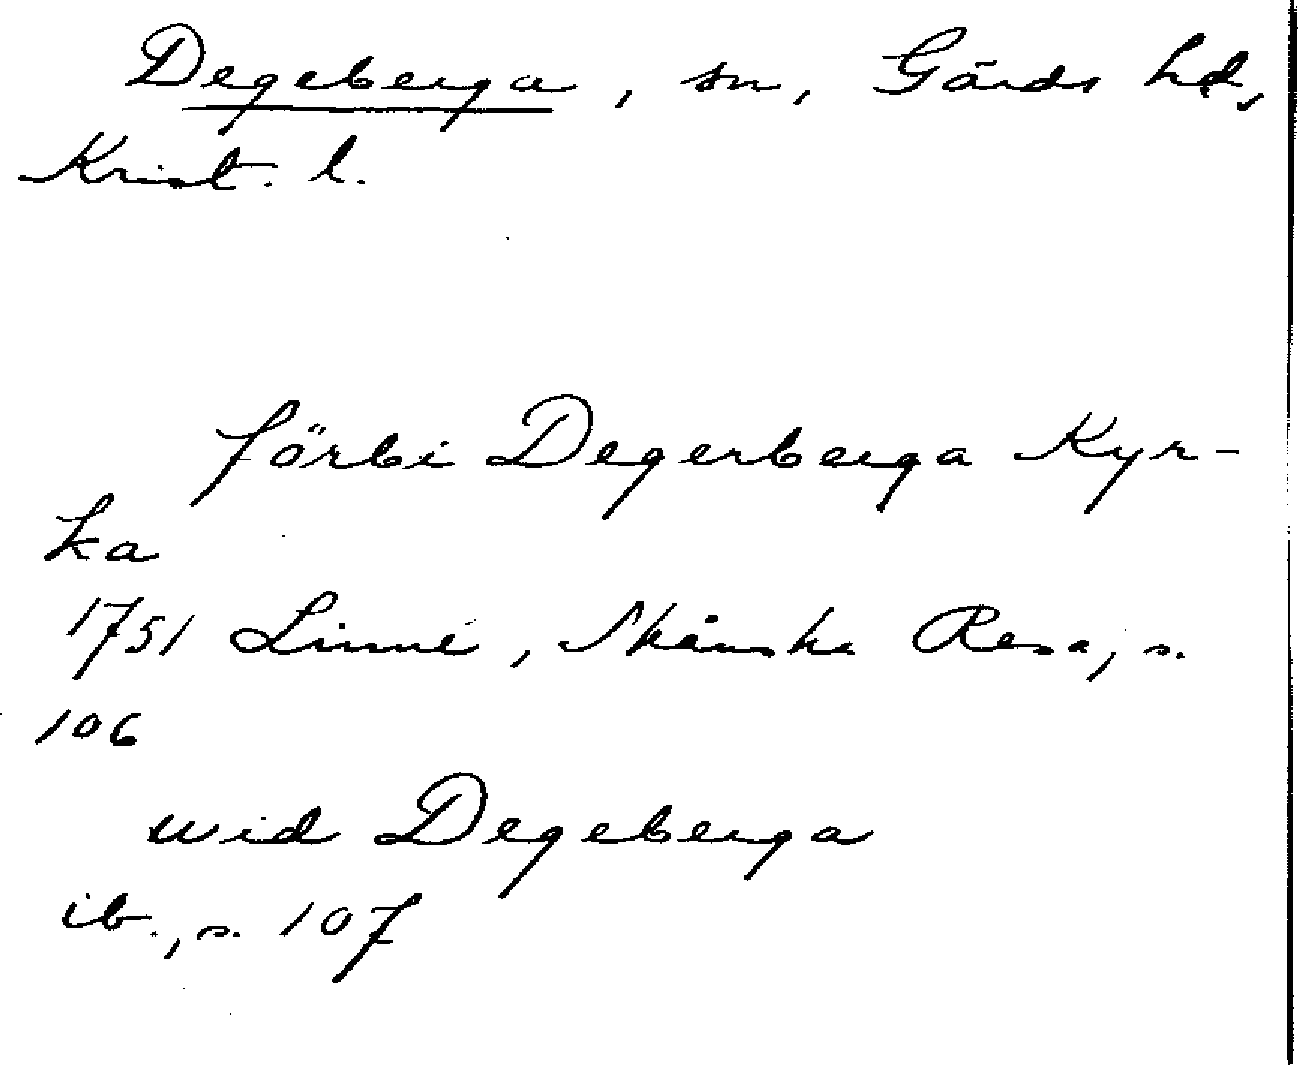 Degeberga, sn, Gärds hd,
Krist. l.
förbi Degerberga Kyr-
ka
1751 Linné, Skånska Resa, s.
106
wid Degeberga
ib., s. 107